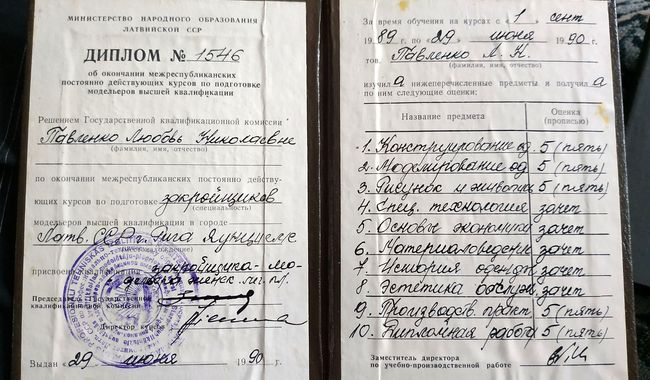 МИНИСТЕРСТВО НАРОДНОГО ОБРАЗОВАНИЯ
ЛАТВИЙСКОЙ ССР
ДИПЛОМ № 1546
об окончании межреспубликанских
постоянно действующих курсов по подготовке
модельеров высшей квалификации
Решением Государственной квалификационной комиссии
Павленко Любовь Николаевне
(фамилия, имя, отчество)
по окончании межреспубликанских постоянно действую-
щих курсов по подготовке закройщиков
(специальность)
модельеров высшей квалификации в городе
Латв. ССР г. Рига
присвоена
закройщика-мо
дельера женск.
Председатель Государственной
квалификационной комиссии
Директор курсов
Выдан «29 июня 1990 г.
За время обучения на курсах с «1 сент
1989 г. по «29 июня 1990 г.
Павленко Л. Н.
(фамилия, имя, отчество)
изучила нижеперечисленные предметы и получила
по ним следующие оценки:
Название предмета
Оценка
(прописью)
1. Конструирование од 5 (пять)
2. Моделирование од 5 (пять)
3. Рисунок и живопи 5 (пять)
4. Спец. технология зачет
5. Основы экономики зачет
6. Материаловеден зачет
7. История одежды зачет
8. Эстетика обслуж зачет
9. Производств. практ 5 (пять)
10. Дипломная работа 5 (пять)
Заместитель директора
по учебно-производительной работе